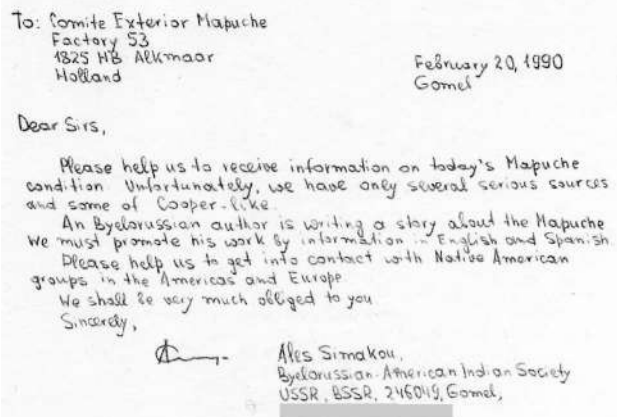 To: Comite Exterior Mapuche
Factory 53
1825 HB Alkmaar
Holland
February 20, 1990
Gomel
Dear Sirs,
Please help us to receive information on today's Mapuche
condition. Unfortunately, we have only several serious sources
and some of Cooper-like.
An Byelorussian author is writing a story about the Mapuche
We must promote his work by information in English and Spanish.
Please help us to get into contact with Native American
groups in the Americas and Europe.
We shall be very much obliged to you
Sincerely,
Ales Simakou,
Byelorussian-American Indian Society
USSR, BSSR, 246049, Gomel,